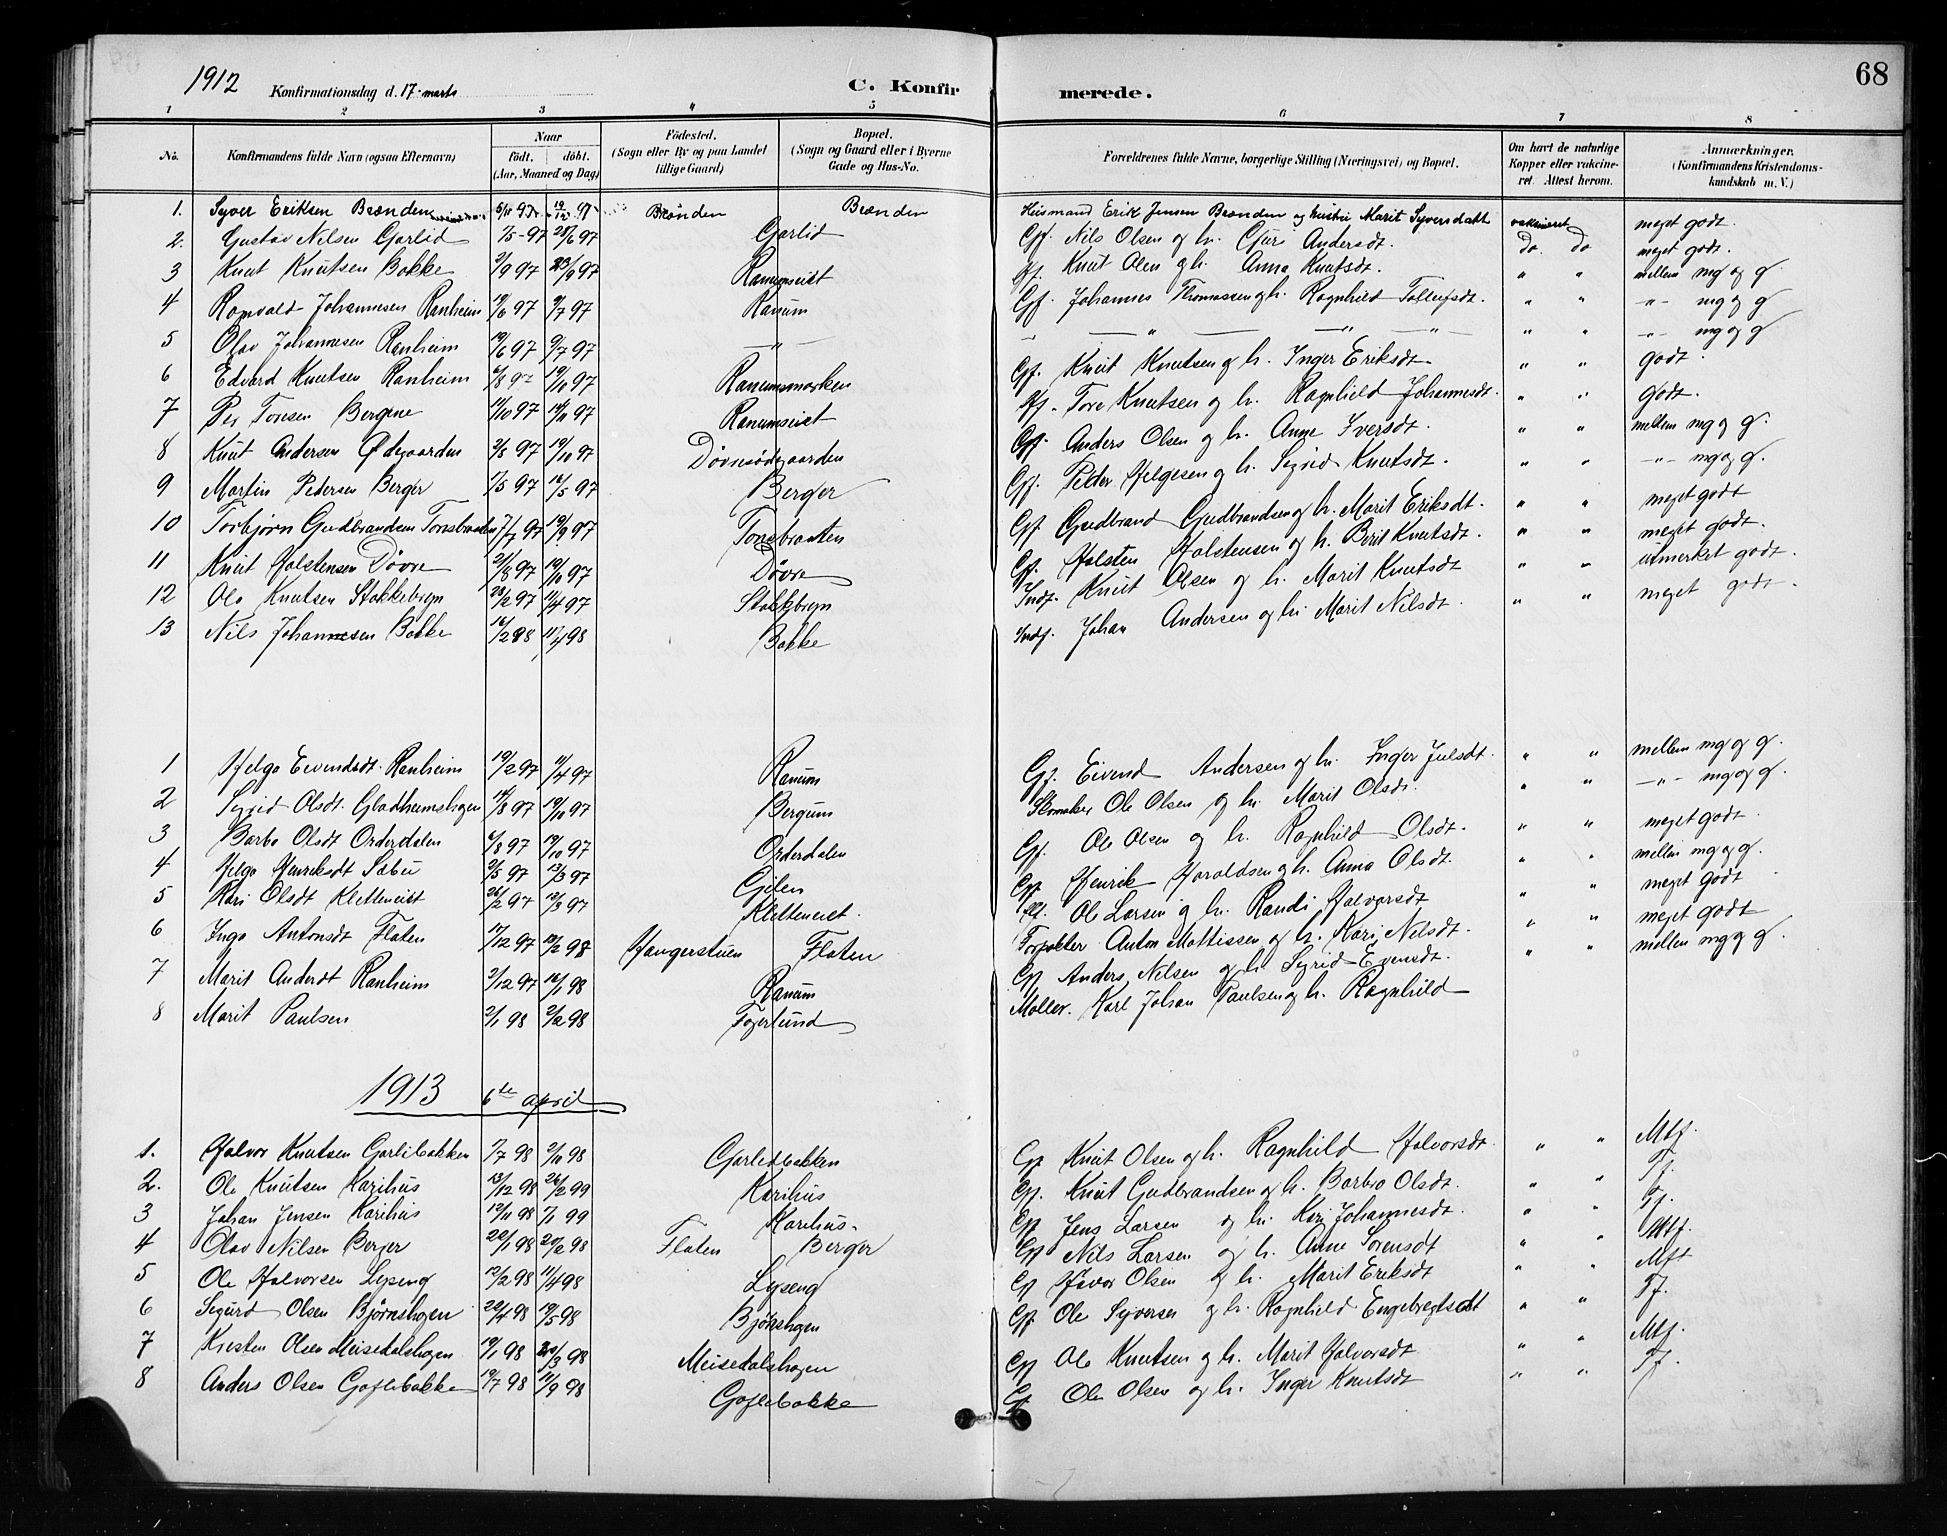 1912 Konfirmationsdag d. 17 marts C. Konfirmerede. 68
1 2 3 4 5 6 7 8
No. Konfirmandens fulde Navn (ogsaa Efternavn) Naar födt. döbt. (Aar, Maaned og Dag) Födested. (Sogn eller By og paa Landet tillige Gaard) Bopæl. (Sogn og Gaard eller i Byerne Gade og Hus-No. Forældrenes fulde Navne, borgerlige Stilling (Næringsvei) og Bopæl. Om havt de naturlige Kopper eller vakcineret. Attest herom. Anmærkninger. (Konfirmandens Kristendomskundskab m. V.)
1. Syver Eriksen Brænden 5/11 97 19/12 97 Brænden Brænden Husmand Erik Jensen Brænden og hustru Marit Syversdatt vakcineret meget godt
2. Gustav Nilsen Garlid 7/5-97 28/6 97 Garlid Gf. Nils Olsen og h. Andersdt. do do meget godt.
3 Knut Knutsen Bakke 2/9 97 23/9 97 Ranumseiet Knut Olsen og h. Anna Knutsdt. " " mellem mg og g.
4 Ragnvald Johannesen Ranheim 19/6 97 9/7 97 Ranum Gf. Johannes Thomassen og h. Ragnhild Tollefsdt. " " -"- mg og g
5 Olav Johannesen Ranheim 19/6 97 9/7 97 -"- -"- " " -"- mg og g
6 Edvard Knutsen Ranheim 6/8 97 19/10 97 Ranumsmarken Gf. Knut Knutsen og h. Inger Eriksdt. " " godt.
7 Per Toresen Bergene 11/10 97 14/11 97 Ranumseiet Tore Knutsen og h. Ragnhild Johannesdt. " " godt.
8 Knut Andersen Ødegaarden 2/8 97 19/10 97 Døvresødegaarden Gf. Anders Olsen og h. Anne Iversdt. " " mellem mg og g.
9 Martin Pedersen Berger 7/5 97 16/5 97 Berger Gf. Peder Helgesen og h. Sigrid Knutsdt. " " -"- mg og g.
10 Torbjørn Gudbrandsen Tonsbraaten 7/7 97 19/9 97 Tonsbraaten Gf. Gudbrand Gudbrandsen og h. Marit Eriksdt. " " meget godt
11 Knut Halstensen Døvre 21/8 97 19/10 97 Døvre Gf. Halsten Halstensen og h. Berit Knutsdt. " " meget godt.
12 Ole Knutsen Stokkebryn 28/2 97 11/4 97 Stokkbryn Indf. Knut Olsen og h. Marit Knutsdt " " utmerket godt.
13 Nils Johannesen Bakke 16/2 98 11/4 98 Bakke Indf. Johan Andersen og h. Marit Nilsdt. " " meget godt.
1 Helga Eivendsdt. Ranheim 19/2 97 11/4 97 Ranum Gf. Eivend Andersen og h. Inger Julsdt. " " mellem mg og g.
2 Sigrid Olsdt. Gladheimshagen 14/8 97 19/10 97 Bergum Skomaker Ole Olsen og h. Marit Olsdt. " " -"- mg og g.
3 Barbo Olsdt Orderdalen 6/8 97 19/10 97 Orderdalen Gf. Ole Olsen og h. Ragnhild Olsdt. " " meget godt.
4 Helga Henriksdt Sæbu 2/5 97 13/3 97 Gilen Gf Henrik Haraldsen og h. Anna Olsdt. " " mellem mg og g.
5 Kari Olsdt Kletteneiet 26/2 97 12/3 97 Kletteneiet. Ole Larsen og h. Randi Halvorsdt " " meget godt
6 Inga Antonsdt Flaten 17/12 97 10/2 98 Haugerstuen Flaten Forpakter Anton Mattissen og h. Kari Nelsdt. " " meget godt
7 Marit Andersdt Ranheim 2/12 97 16/1 98 Ranum Gf Anders Nelsen og h. Sigrid Evensdt. " " mellem mg og g.
8 Marit Paulsen 2/1 98 2/2 98 Fagerlund Møller. Karl Johan Paulsen og h. Ragnhild
1913 6te april
1. Halvor Knutsen Garlibakken 1/7 98 2/10 98 Garlidbakken Gf Knut Olsen og h. Ragnhild Halvorsdt. " " Mtf.
2. Ole Knutsen Karihus 13/12 98 26/2 99 Karihus Gf. Knut Gudbrandsen og h. Barbro Olsdt. " " Tf.
3 Johan Jensen Karihus 12/11 98 7/1 99 Karihus. Gf Jens Larsen og h. Kari Johannesdt. " " Tf.
4 Olav Nilsen Berger 22/1 98 20/2 98 Flaten Berger Gf Nils Larsen og h. Anne Sørensdt " " Mtf.
5 Ole Halvorsen Lyseng 12/2 98 11/4 98 Lyseng Gf Halvor Olsen og h. Marit Eriksdt " " Mtf
6 Sigurd Olsen Bjørnshagen 22/4 98 19/5 98 Bjørnshagen Gf. Ole Syversen og h. Ragnhild Engebregtsdt " " Tf.
7 Kristen Olsen Meisedalshagen 19/1 98 20/3 98 Meisedalshagen Gf Ole Knutsen og h. Marit Halvorsdt " " Mtf.
8 Anders Olsen Goflebakke 19/7 98 11/9 98 Goflebakke Gf Ole Olsen og h. Inger Knutsdt " " Tf.